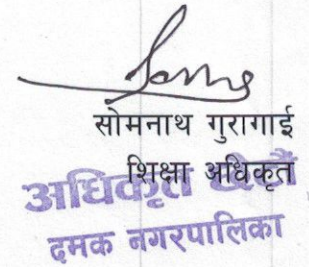 सोमनाथ गुरागाई
शिक्षा अधिकृत
अधिकृत
दमक नगरपालिका